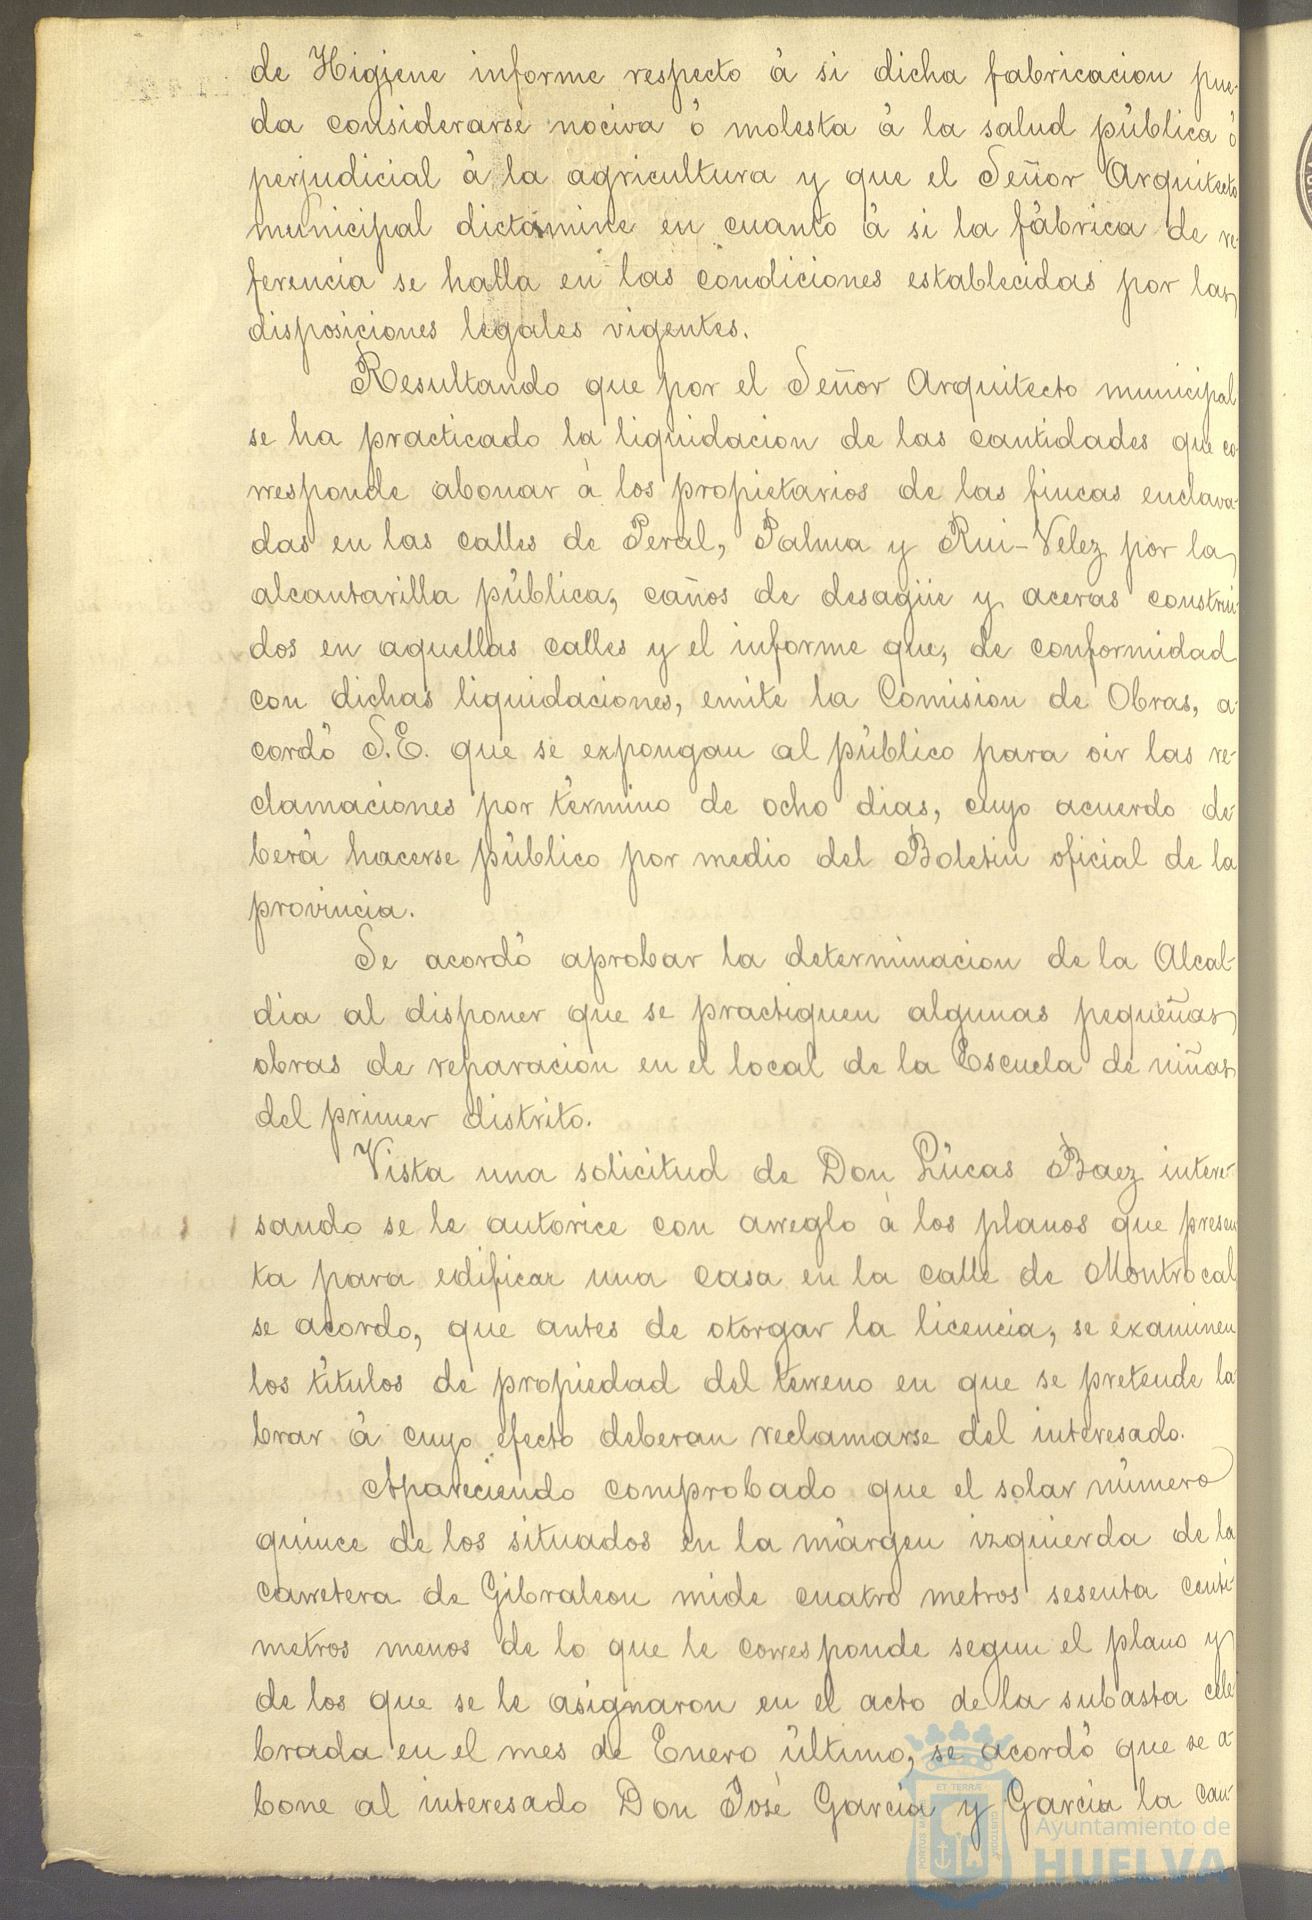 de Higiene informe respecto à si dicha fabricacion pue-
da considerarse nociva ó molesta à la salud pública ó
perjudicial à la agricultura y que el Señor Arquitecto
municipal dictamine en cuanto à si la fábrica de re-
ferencia se halla en las condiciones establecidas por las
disposiciones legales vigentes.
Resultando que por el Señor Arquitecto municipal
se ha practicado la liquidacion de las cantidades que co-
rresponde abonar à los propietarios de las fincas enclava-
das en las calles de Peral, Palma y Rui-Velez por la
alcantarilla pública, caños de desagüe y aceras construi-
dos en aquellas calles y el informe que, de conformidad
con dichas liquidaciones, emite la Comision de Obras, a-
cordó S.E. que se expongan al público para oir las re-
clamaciones por término de ocho dias, cuyo acuerdo de-
berá hacerse público por medio del Boletin oficial de la
provincia.
Se acordó aprobar la determinacion de la Alcal-
dia al disponer que se practiquen algunas pequeñas
obras de reparacion en el local de la Escuela de niñas
del primer distrito.
Vista una solicitud de Don Lúcas Baez intere-
sando se le autorice con arreglo à los planos que presen
ta para edificar una casa en la calle de Montrocal
se acordo, que antes de otorgar la licencia, se examinen
los títulos de propiedad del terreno en que se pretende la-
brar à cuyo efecto deberan reclamarse del interesado.
Apareciendo comprobado que el solar número
quince de los situados en la márgen izquierda de la
carretera de Gibraleon mide cuatro metros sesenta centi-
metros menos de lo que le corresponde segun el plano y
de los que se le asignaron en el acto de la subasta cele-
brada en el mes de Enero último, se acordó que se a-
bone al interesado Don José Garcia y Garcia la can-
ET TERRÆ
PORTUS MA
CUSTODIA
Ayuntamiento de
HUELVA